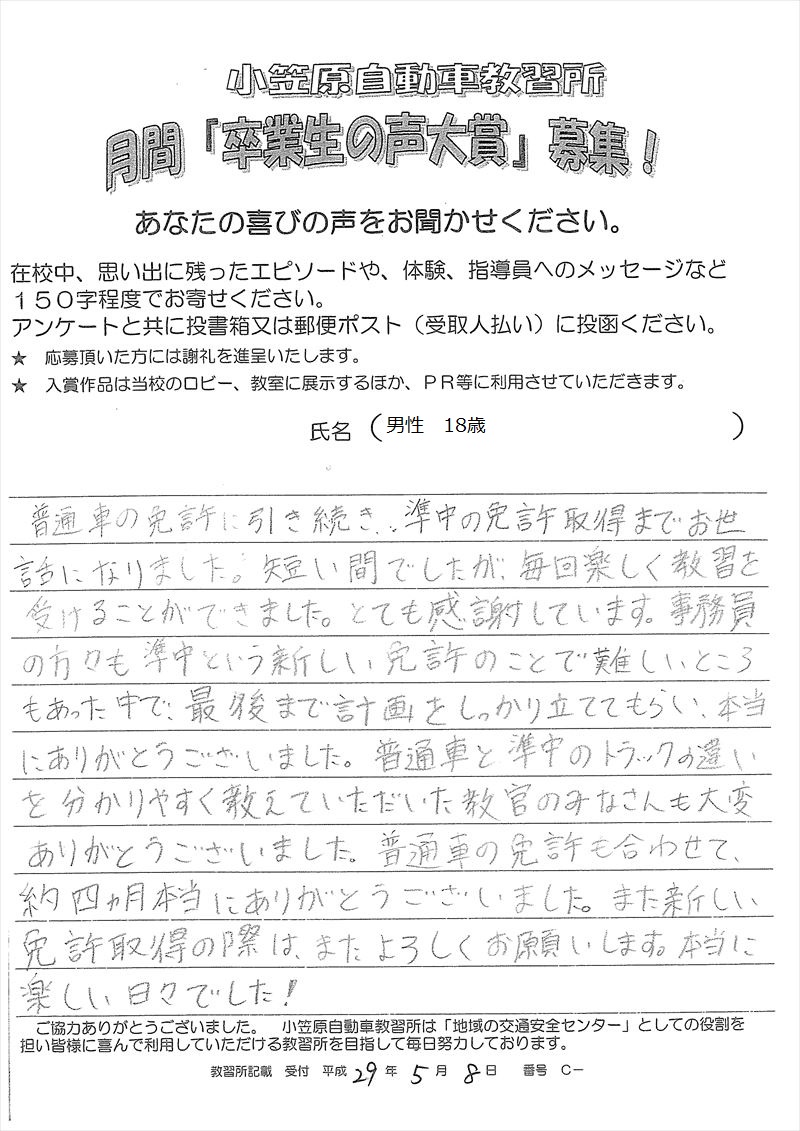 小笠原自動車教習所
月間「卒業生の声大賞」募集！
あなたの喜びの声をお聞かせください。
在校中、思い出に残ったエピソードや、体験、指導員へのメッセージなど
１５０字程度でお寄せください。
アンケートと共に投書箱又は郵便ポスト（受取人払い）に投函ください。
★　応募頂いた方には謝礼を進呈いたします。
★　入賞作品は当校のロビー、教室に展示するほか、ＰＲ等に利用させていただきます。
氏名（男性　18歳　）
普通車の免許に引き続き、準中の免許取得までお世
話になりました。短い間でしたが、毎回楽しく教習を
受けることができました。とても感謝しています。事務員
の方々も準中という新しい免許のことで難しいところ
もあった中で、最後まで計画をしっかり立ててもらい、本当
にありがとうございました。普通車と準中のトラックの違い
を分かりやすく教えていただいた教官のみなさんも大変
ありがとうございました。普通車の免許も合わせて、
約四ヵ月本当にありがとうございました。また新しい
免許取得の際は、またよろしくお願いします。本当に
楽しい日々でした！
ご協力ありがとうございました。　小笠原自動車教習所は「地域の交通安全センター」としての役割を
担い皆様に喜んで利用していただける教習所を目指して毎日努力しております。
教習所記載　受付　平成 29 年 5 月 8 日　番号　Ｃ－